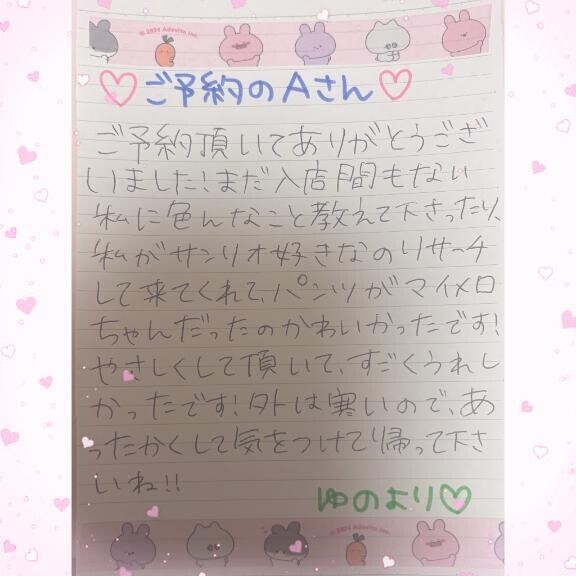 © 2024 Adevito, Inc.
ご予約のAさん
ご予約頂いてありがとうござ
いました!まだ入店間もない
私に色んなこと教えて下さったり、
私がサンリオ好きなのリサーチ
して来てくれて、パンツがマイメロ
ちゃんだったのかわいかったです!
やさしくして頂いて、すごくうれし
かったです!外は寒いので、あ
ったかくして気をつけて帰って下さ
いね!!
ゆのより
© 2024 Adevito, Inc.